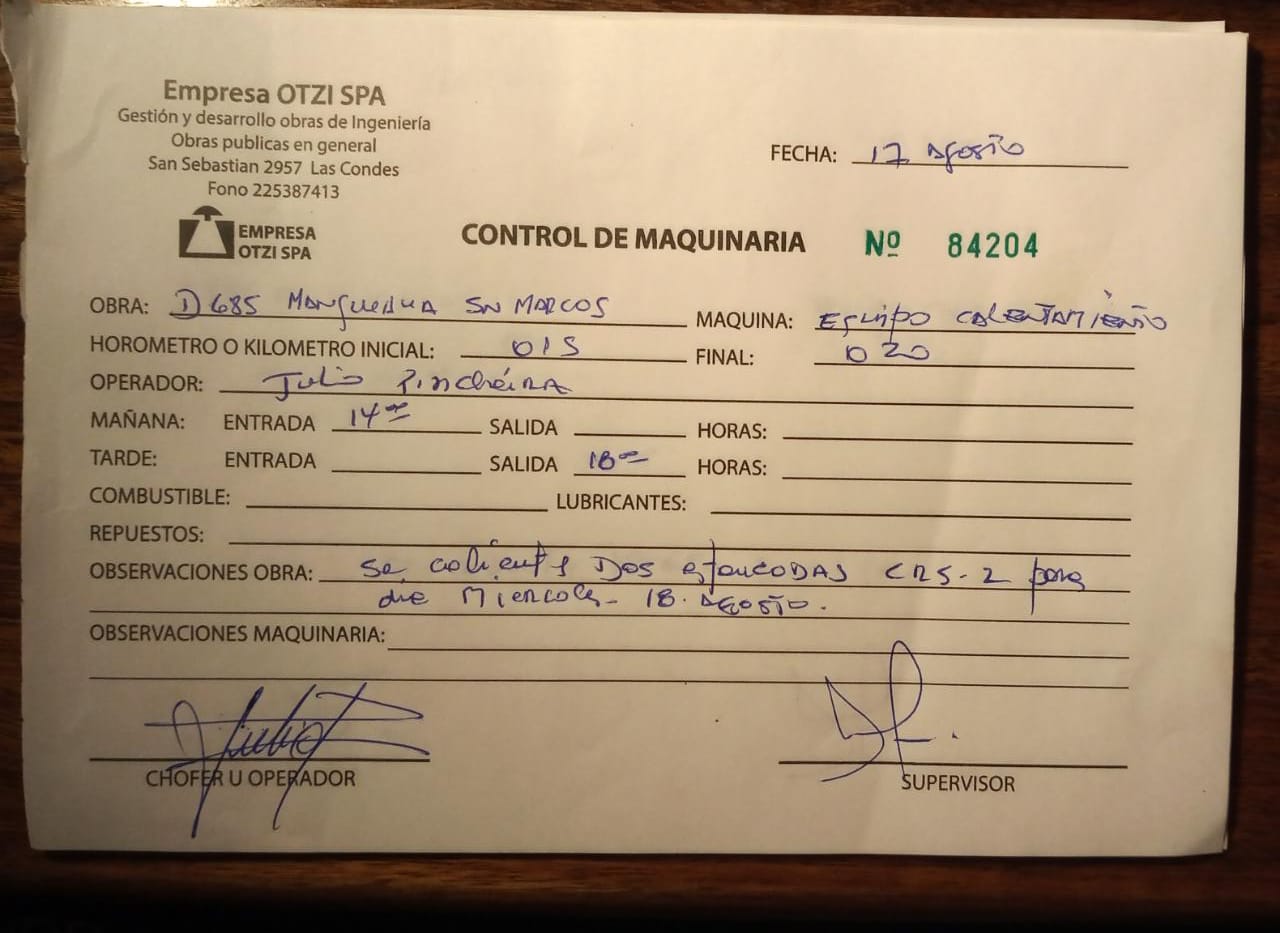 Empresa OTZI SPA
Gestión y desarrollo obras de Ingeniería
Obras publicas en general
San Sebastian 2957 Las Condes
Fono 225387413
FECHA: 17 Agosto
EMPRESA
OTZI SPA
CONTROL DE MAQUINARIA Nº 84204
OBRA: D 685 Manquehua SN MARCOS MAQUINA: Equipo CALENTAMIENTO
HOROMETRO O KILOMETRO INICIAL: 015 FINAL: 020
OPERADOR: Julio Pincheira
MAÑANA: ENTRADA 14 00 SALIDA HORAS:
TARDE: ENTRADA SALIDA 18 00 HORAS:
COMBUSTIBLE: LUBRICANTES:
REPUESTOS:
OBSERVACIONES OBRA: Se DOS CRS-2 para
Miercoles - 18. Agosto.
OBSERVACIONES MAQUINARIA:
CHOFER U OPERADOR
SUPERVISOR